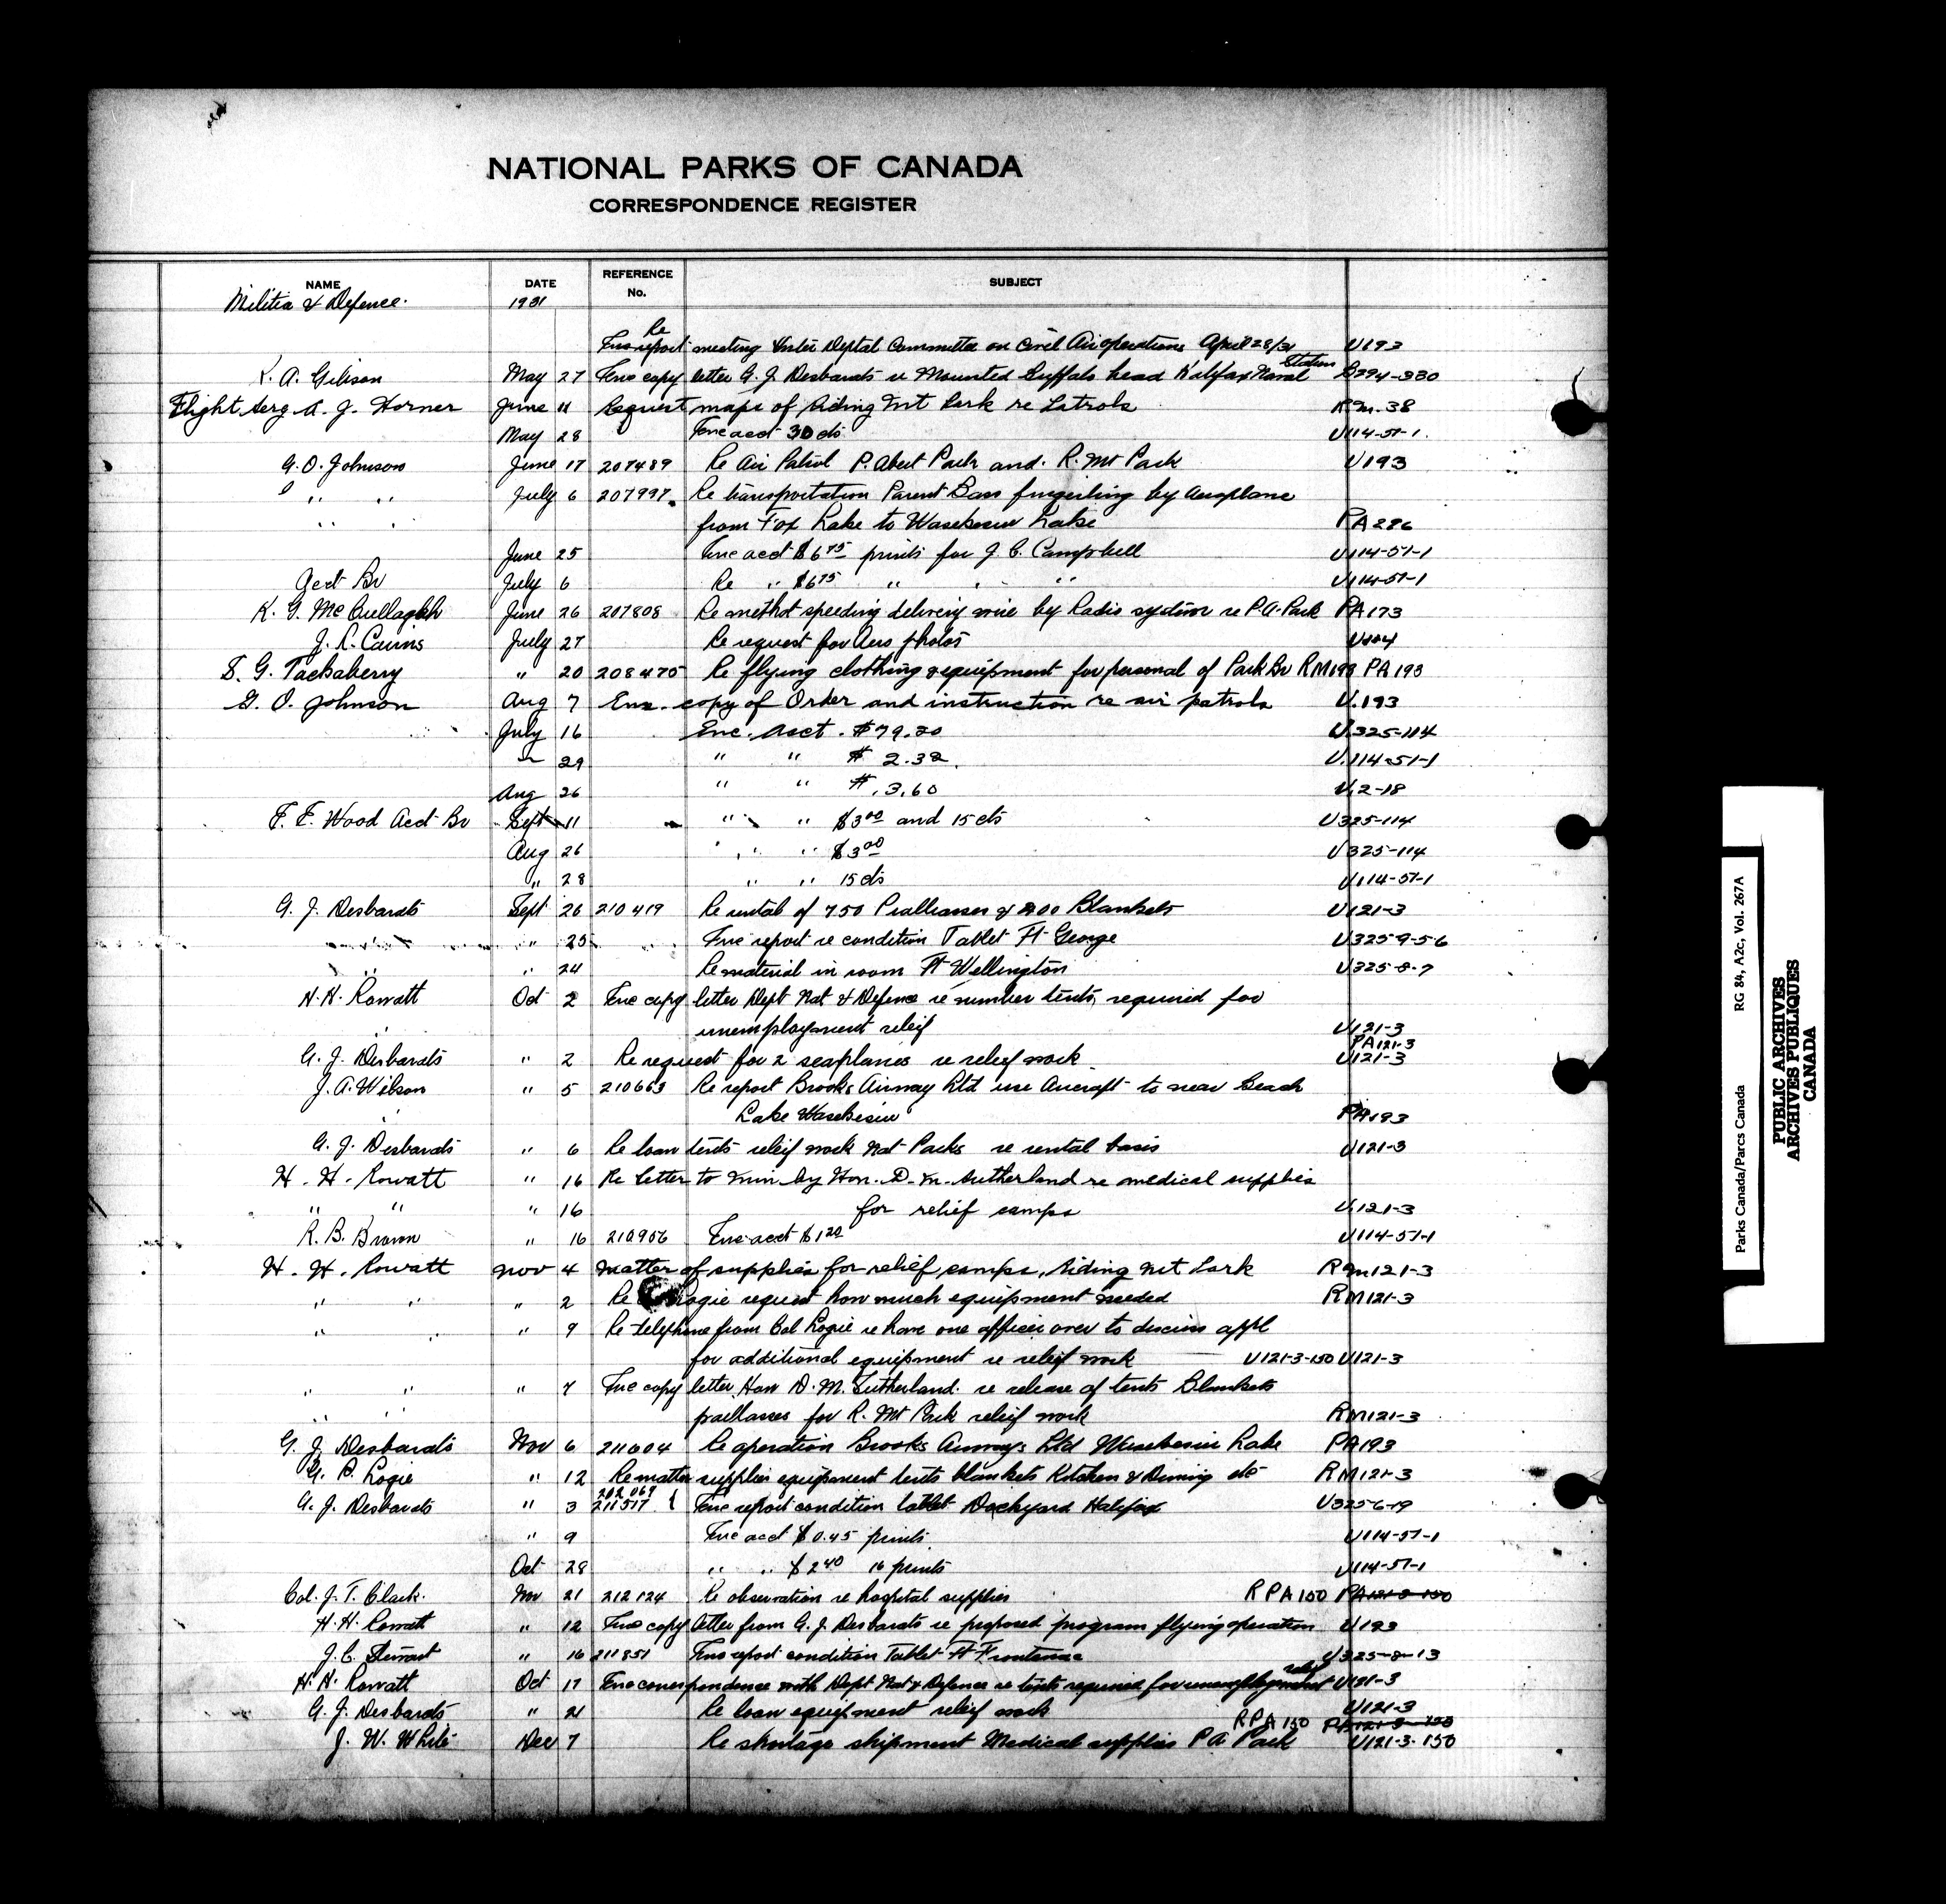 NATIONAL PARKS OF CANADA
CORRESPONDENCE REGISTER
NAME DATE REFERENCE No. SUBJECT
Militia & Defence. 1931
Re
Enc report meeting Inter Deptal Committee on Civil Air operations April 28/31 U193
K. A. Gibson May 27 Enc copy letter G. J. Desbarats re Mounted Buffalo head Halifax Naval Station B294-330
Flight Serg A. J. Horner June 11 Request maps of Riding Mt Park re Patrols RM.38
May 28 Enc acct 30 cts U114-57-1.
G. O. Johnson June 17 207489 Re Air Patrol P. Abert Park and. R. Mt Park U193
" " " July 6 207997. Re transportation Parent Bass fingerling by Aeroplane
" " from Fox Lake to Waskesiu Lake PA286
June 25 Enc acct $6 75 prints for J. C. Campbell U114-57-1
Acct Br July 6 Re " $6 75 " " " U114-57-1
K. G. McCullagh June 26 207808 Re method speeding delivery mise by Radio system re P.A. Park PA173
J. R. Cairns July 27 Re request for Aero photos U104
S. G. Tackaberry " 20 208475 Re flying clothing & equipment for personal of Park Br RM193 PA193
G. O. Johnson Aug 7 Enc. copy of Order and instruction re air patrols U.193
July 16 Enc. Acct. $79.20 U.325-114
" 29 " " $ 2.32. U.114-51-1
Aug 26 " " $ .3.60 U.2-18
F. F. Wood Acct Br Sept 11 " " $3 00 and 15 cts U325-114
Aug 26 " " $3 00 U325-114
" 28 " " 15 cts U114-57-1
G. J. Desbarats Sept 26 210419 Re rental of 750 Pialliasses & 200 Blankets U121-3
" " 25 Enc report re condition Tablet Ft George U325-9-56
" " 24 Re material in room Ft Wellington U325-8-7
H. H. Rowatt Oct 2 Enc copy letter Dept Nat & Defence re number tents, required for
unemployment releif U121-3
PA121-3
G. J. Desbarats " 2 Re request for 2 seaplanes re releif work U121-3
J. A. Wilson " 5 210663 Re report Brooks Airway Ltd use Aircraft to near Beach
" Lake Waskesiu PA193
G. J. Desbarats " 6 Re loan tents releif work Nat Parks re rental basis U121-3
H. H. Rowatt " 16 Re letter to Min by Hon. D. M. Sutherland re medical supplies
" " " 16 for relief camps U.121-3
R. B. Brown " 16 210956 Enc acct $1 20 U114-57-1
H. H. Rowatt Nov 4 Matter of supplies for relief camps, Riding Mt Park RM121-3
" " " 2 Re Logie request how much equipment needed RM121-3
" " " 9 Re telephone from Col Logie re have one officer over to discuss appl
for additional equipment re releif work U121-3-150 U121-3
" " " 7 Enc copy letter Hon D. M. Sutherland. re release of tents Blankets
" " paillasses for R. Mt Park releif work RM121-3
G. J. Desbarats Nov 6 211604 Re operation Brooks Airways Ltd Waskesiu Lake PA193
G. P. Logie " 12 Re matter supplies equipment tents blankets Kitchen & Dining etc RM121-3
202069
G. J. Desbarats " 3 211517 Enc report condition tablet Dockyard Halifax U325-6-19
" 9 Enc acct $0.45 prints U114-57-1
Oct 28 " " $2 40 16 prints U114-57-1
Col. J. T. Clark. Nov 21 212124 Re observation re hospital supplies RPA150 PA121-3-150
H. H. Rowatt " 12 Enc copy letter from G. J. Desbarats re proposed program flying operation U193
J. C. Stewart " 16 211851 Enc report condition Tablet Ft Frontenac U325-8-13
H. H. Rowatt Oct 17 Enc correspondence with Dept Nat & Defence re tents required for unemployment releif U121-3
G. J. Desbarats " 21 Re loan equipment releif work U121-3
RPA150 PA121-3-150
J. W. White Dec 7 Re shortage shipment Medical supplies PA Park U121-3-150
Parks Canada/Parcs Canada RG 84, A2c, Vol. 267A
PUBLIC ARCHIVES
ARCHIVES PUBLIQUES
CANADA